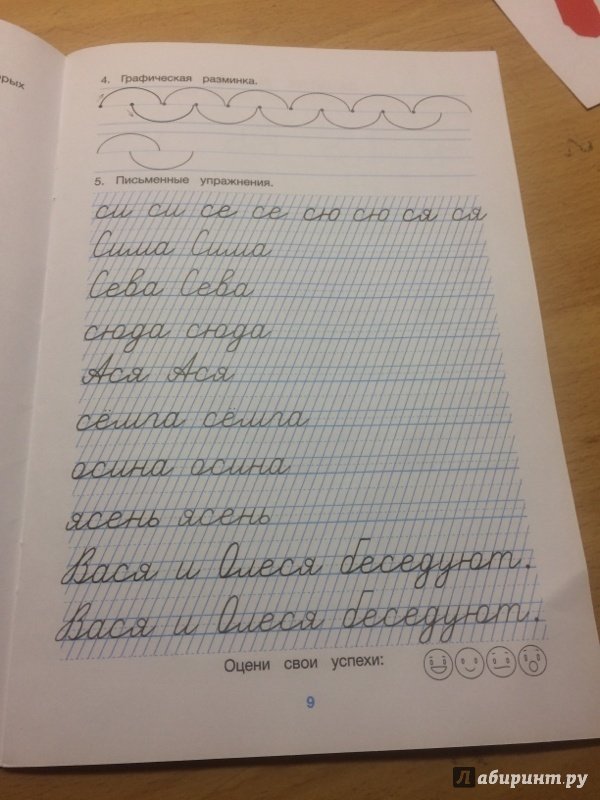 4. Графическая разминка.
5. Письменные упражнения.
си си се се сю сю ся ся
Сима Сима
Сева Сева
сюда сюда
Ася Ася
сёмга сёмга
осина осина
ясень ясень
Вася и Олеся беседуют.
Вася и Олеся беседуют.
Оцени свои успехи:
9
Лабиринт.ру